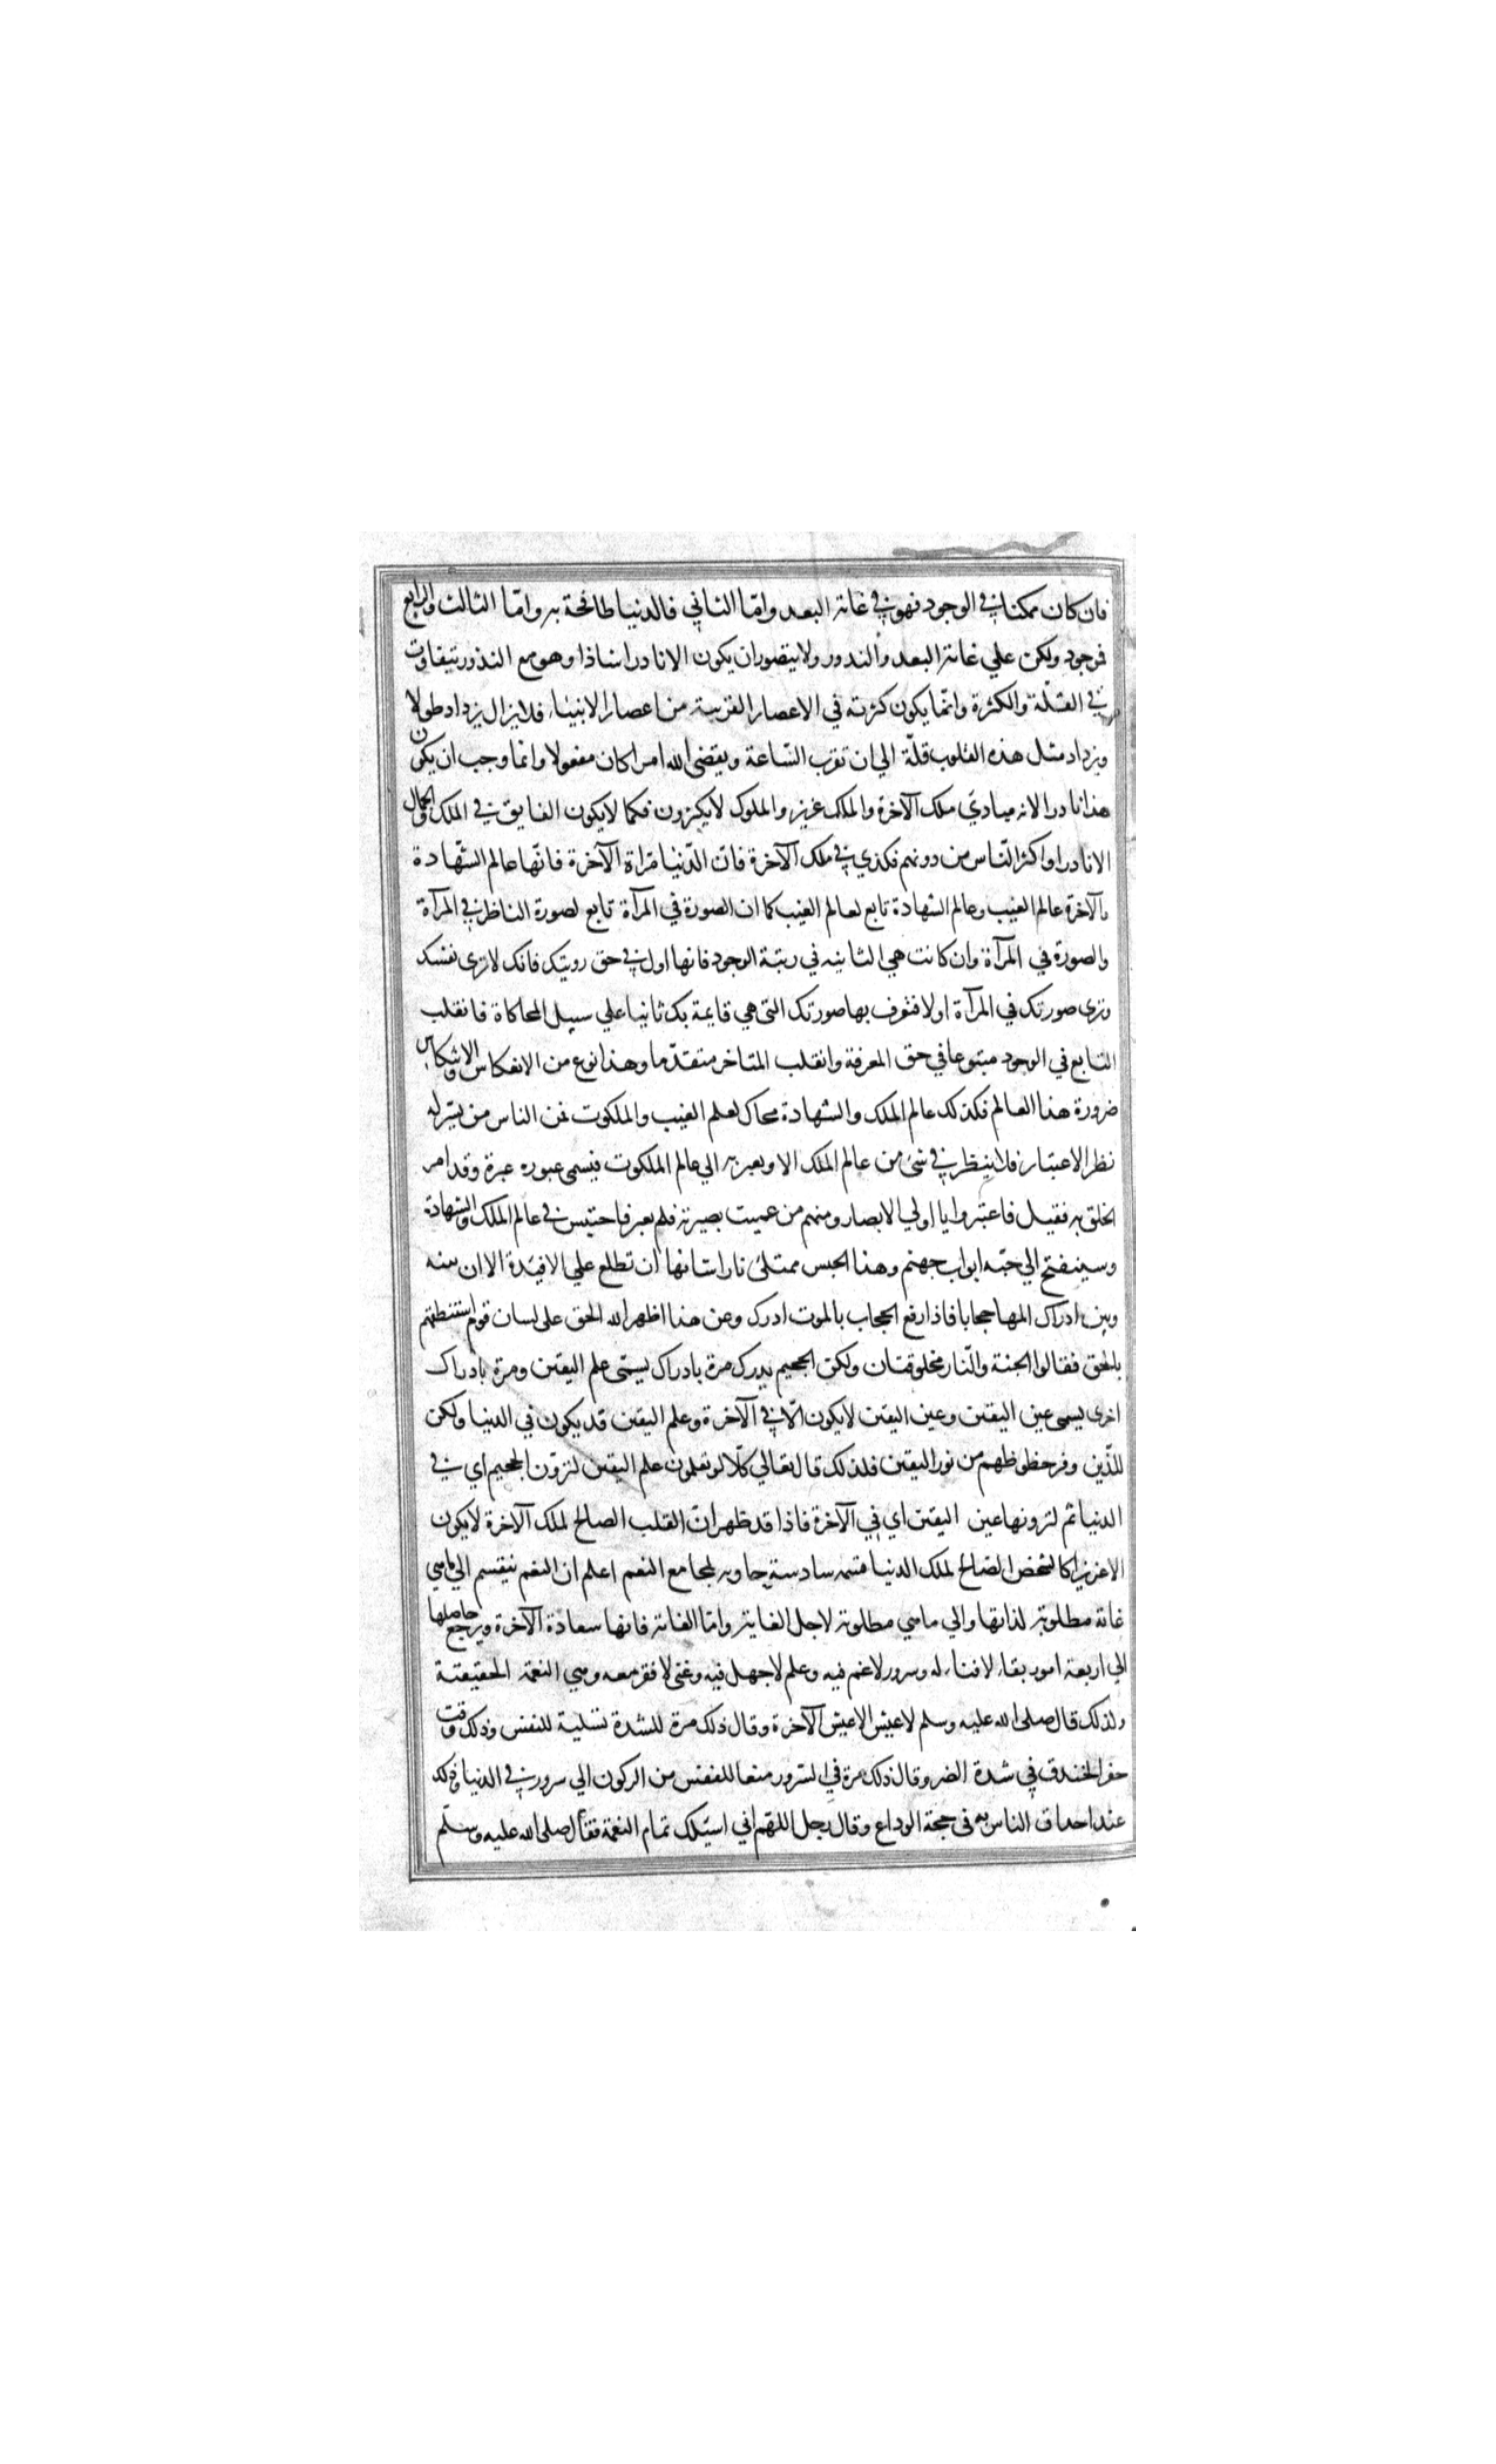 فان كان ممكنا في الوجود فهو في غاية البعد وامّا الثاني فالدنيا طافحة به وامّا الثالث والرابع
فموجود ولكن علي غاية البعد والندور ولا يتصور ان يكون الا نادرا شاذا وهو مع الندور يتفاوت
في القلّة والكثرة وانّما يكون كثرته في الاعصار القريبة من اعصار الانبياء فلا يزال يزداد طولا
ويزداد مثل هذه القلوب قلّة الي ان تقرب السّاعة ويقضي الله امرا كان مفعولا وانما وجب ان يكون
هذا نادرا لانه مبادي ملك الآخرة والملك عزيز والملوك لا يكثرون فكما لا يكون الفايق في الملك والجمال
الا نادرا واكثر النّاس من دونهم فكذي في ملك الآخرة فانّ الدّنيا مرآة الآخرة فانّها عالم الشّهادة
والآخرة عالم الغيب وعالم الشهادة تابع لعالم الغيب كما ان الصورة في المرآة تابع لصورة الناظر في المرآة
والصورة في المرآة وان كانت هي الثانيه في رتبة الوجود فانها اول في حق رويتك فانك لا تري نفسك
وتري صورتك في المرآة اولا فتعرف بها صورتك التي هي قايمة بك ثانيا علي سبيل المحاكاة فانقلب
التابع في الوجود متبوعا في حق المعرفة وانقلب المتاخر متقدّما وهذا نوع من الانعكاس والانتكاس
ضرورة هذا العالم فكذلك عالم الملك والشهادة محاك لعلم الغيب والملكوت فمن الناس من يسّر له
نظر الاعتبار فلا ينظر في شئ من عالم الملك الا ويعبر به الي عالم الملكوت فيسمي عبوره عبرة وقد امر
الخلق به فقيل فاعتبروا يا اولي الابصار ومنهم من عميت بصيرته فلم يعبر فاحتبس في عالم الملك والشهادة
وسينفتح الي حبسه ابواب جهنم وهذا الحبس ممتلئ نارا شانها ان تطلع علي الافيدة الا ان بينه
وبين ادراك المها حجابا فاذا رفع الحجاب بالموت ادرك وعن هذا اظهر الله الحق علي لسان قوم استنطقهم
بالحق فقالوا الجنة والنّار مخلوقتان ولكن الجحيم يدرك مرة بادراك يسمّي علم اليقين ومرة بادراك
اخري يسمي عين اليقين وعين اليقين لا يكون الّا في الآخرة وعلم اليقين قد يكون في الدنيا ولكن
للذين وفر حظوظهم من نور اليقين فلذلك قال تعالي كلّا لو تعلمون علم اليقين لترونّ الجحيم اي في
الدنيا ثم لترونها عين اليقين اي في الآخرة فاذا قد ظهر انّ القلب الصالح لملك الآخرة لا يكون
الا عزيزا كالشخص الصّالح لملك الدنيا قسمه سادسة حاويه لمجامع النعم اعلم ان النعم ينقسم الي ما هي
غاية مطلوبة لذاتها والي ما هي مطلوبة لاجل الغاية وامّا الغاية فانها سعادة الآخرة ويرجع حاصلها
الي اربعة امور بقاء لا فناء له وسرور لا غم فيه وعلم لا جهل فيه وغني لا فقر معه وهي النعمة الحقيقة
ولذلك قال صلي الله عليه وسلم لا عيش الا عيش الآخرة وقال ذلك مرة للشدة تسلية للنفس وذلك وقت
حفر الخندق في شدة الضر وقال ذلك مرة في السّرور منعا للنفس من الركون الي سرور في الدنيا وذلك
عند احداق الناس به في حجة الوداع وقال رجل اللهّم اني اسئلك تمام النعمة فقال صلي الله عليه وسلّم